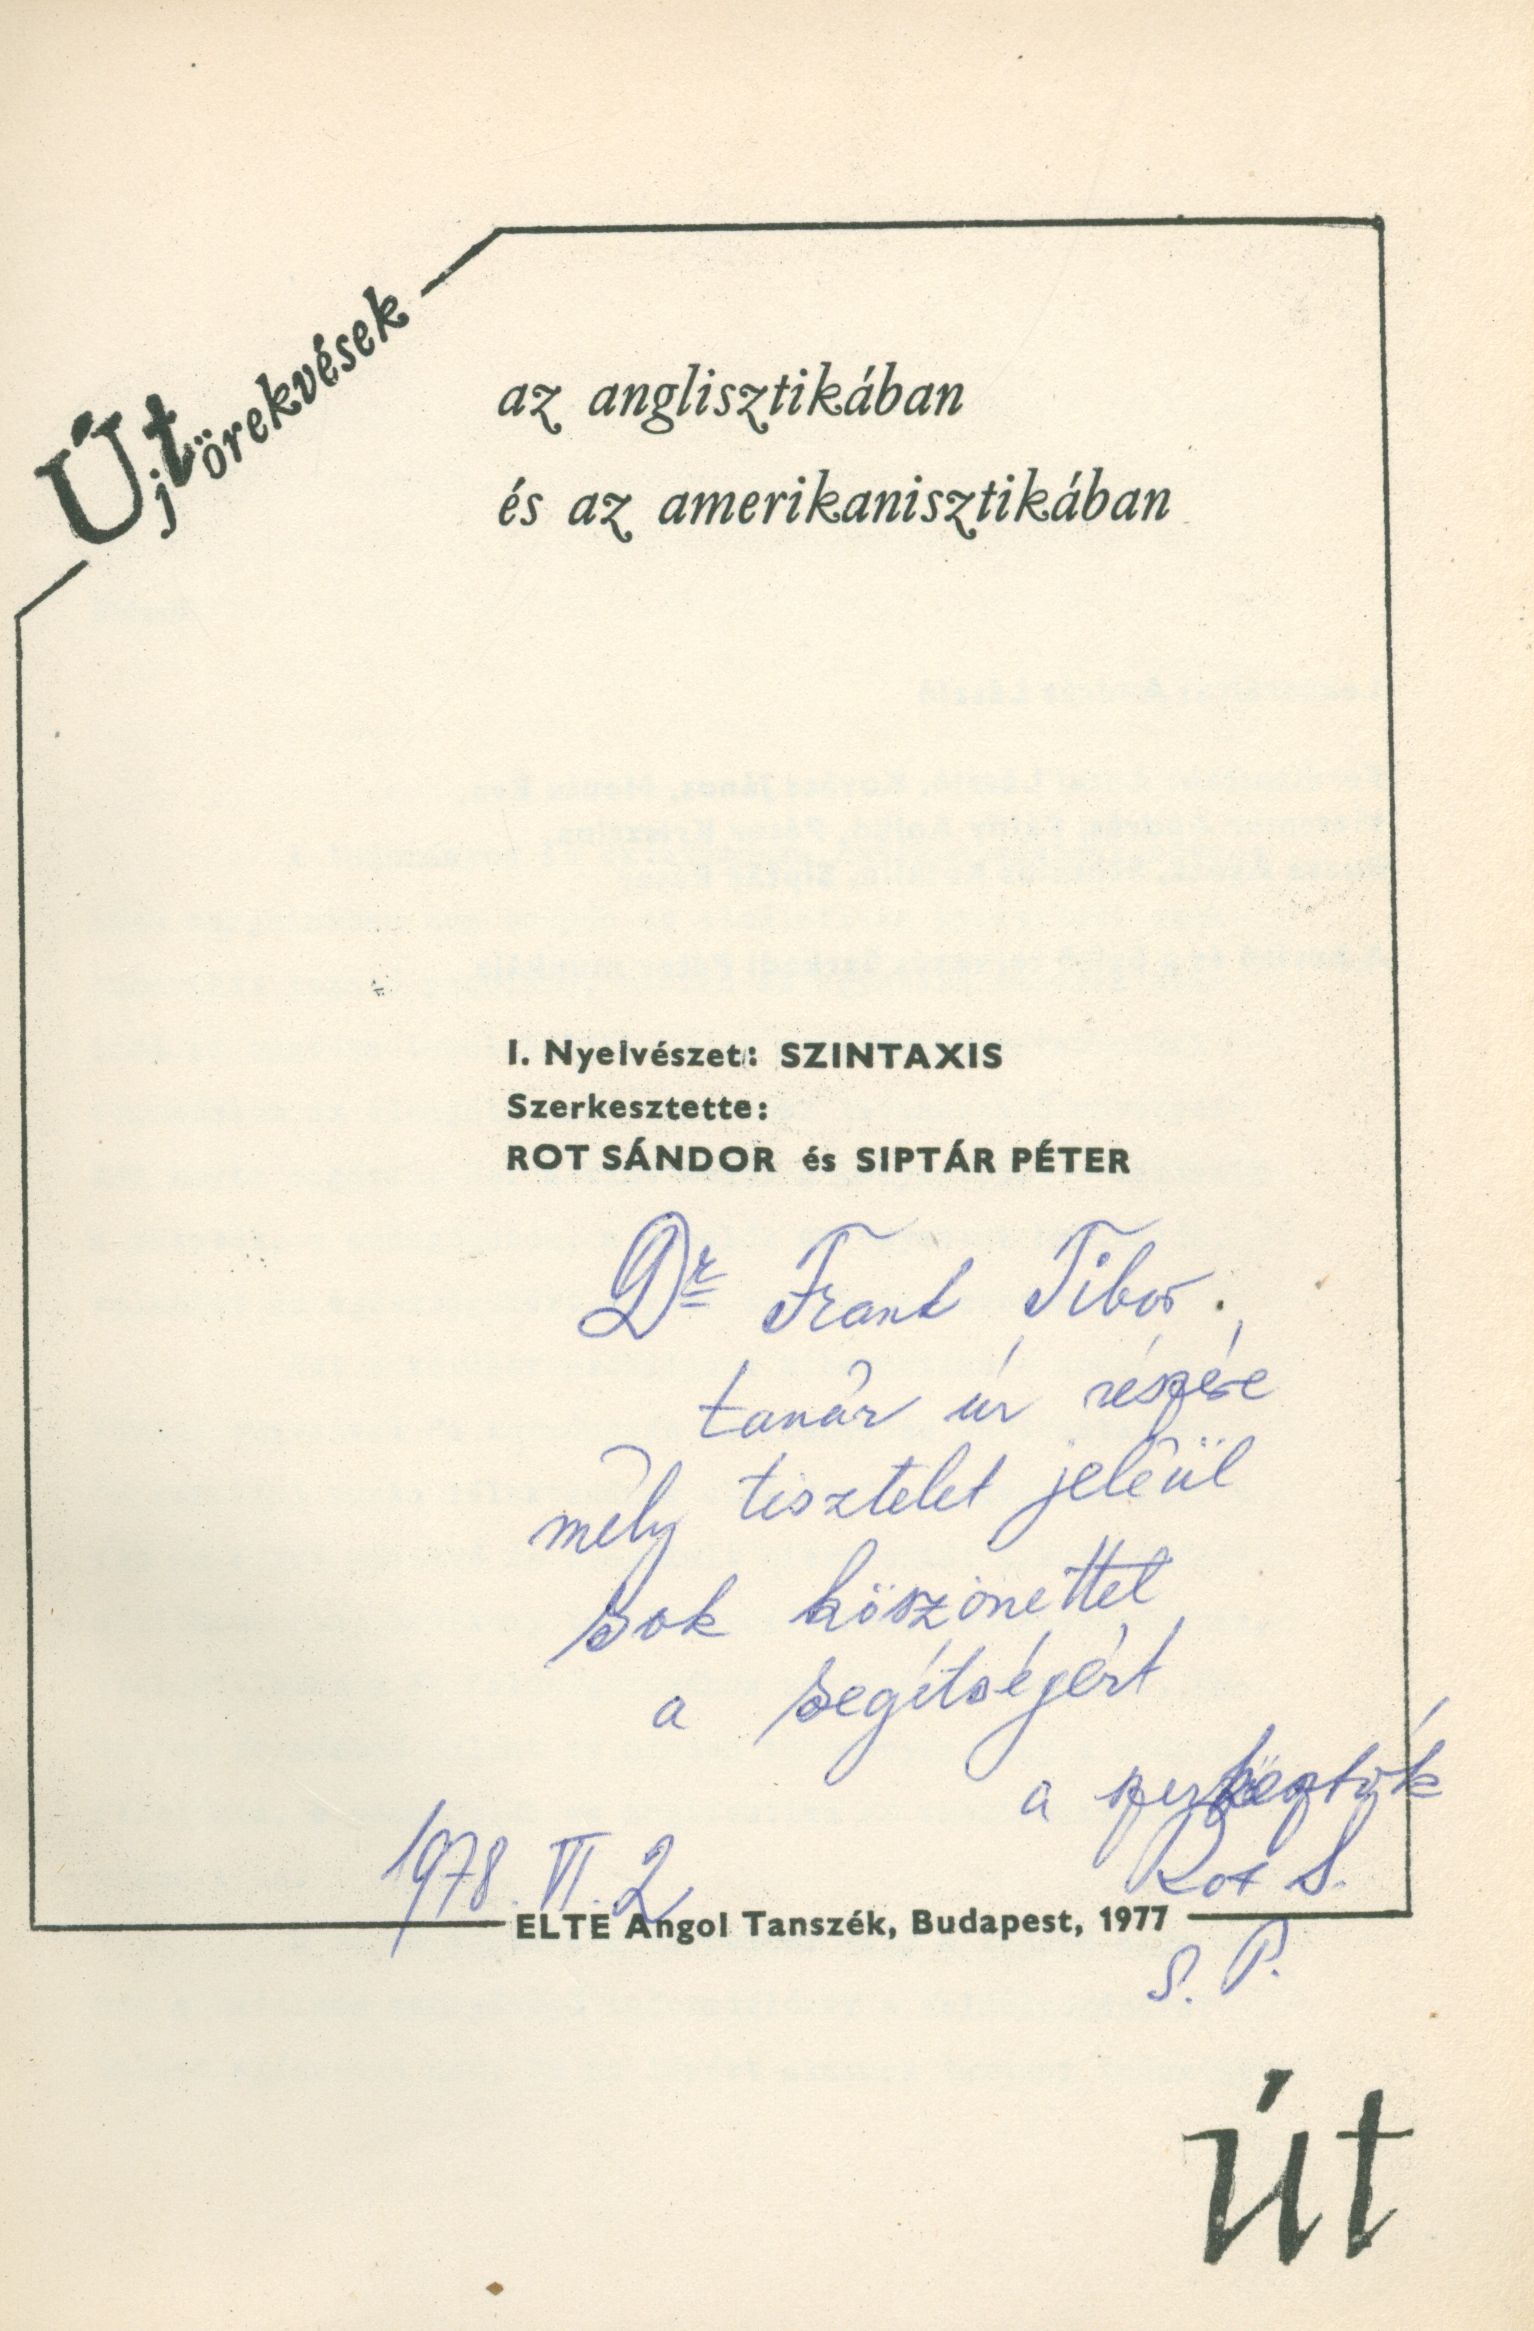 Új törekvések
az anglisztikában
és az amerikanisztikában
I. Nyelvészet: SZINTAXIS
Szerkesztette:
ROT SÁNDOR és SIPTÁR PÉTER
Dr Frank Tibor
tanár úr részére
mély tisztelet jeléül
sok köszönettel
a segítségért
a szerkesztők
Rot S.
1978. VI. 2
ELTE Angol Tanszék, Budapest, 1977
S. P.
út